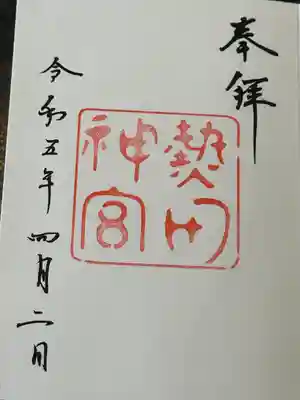 奉拝
熱田
神宮
令和五年四月二日